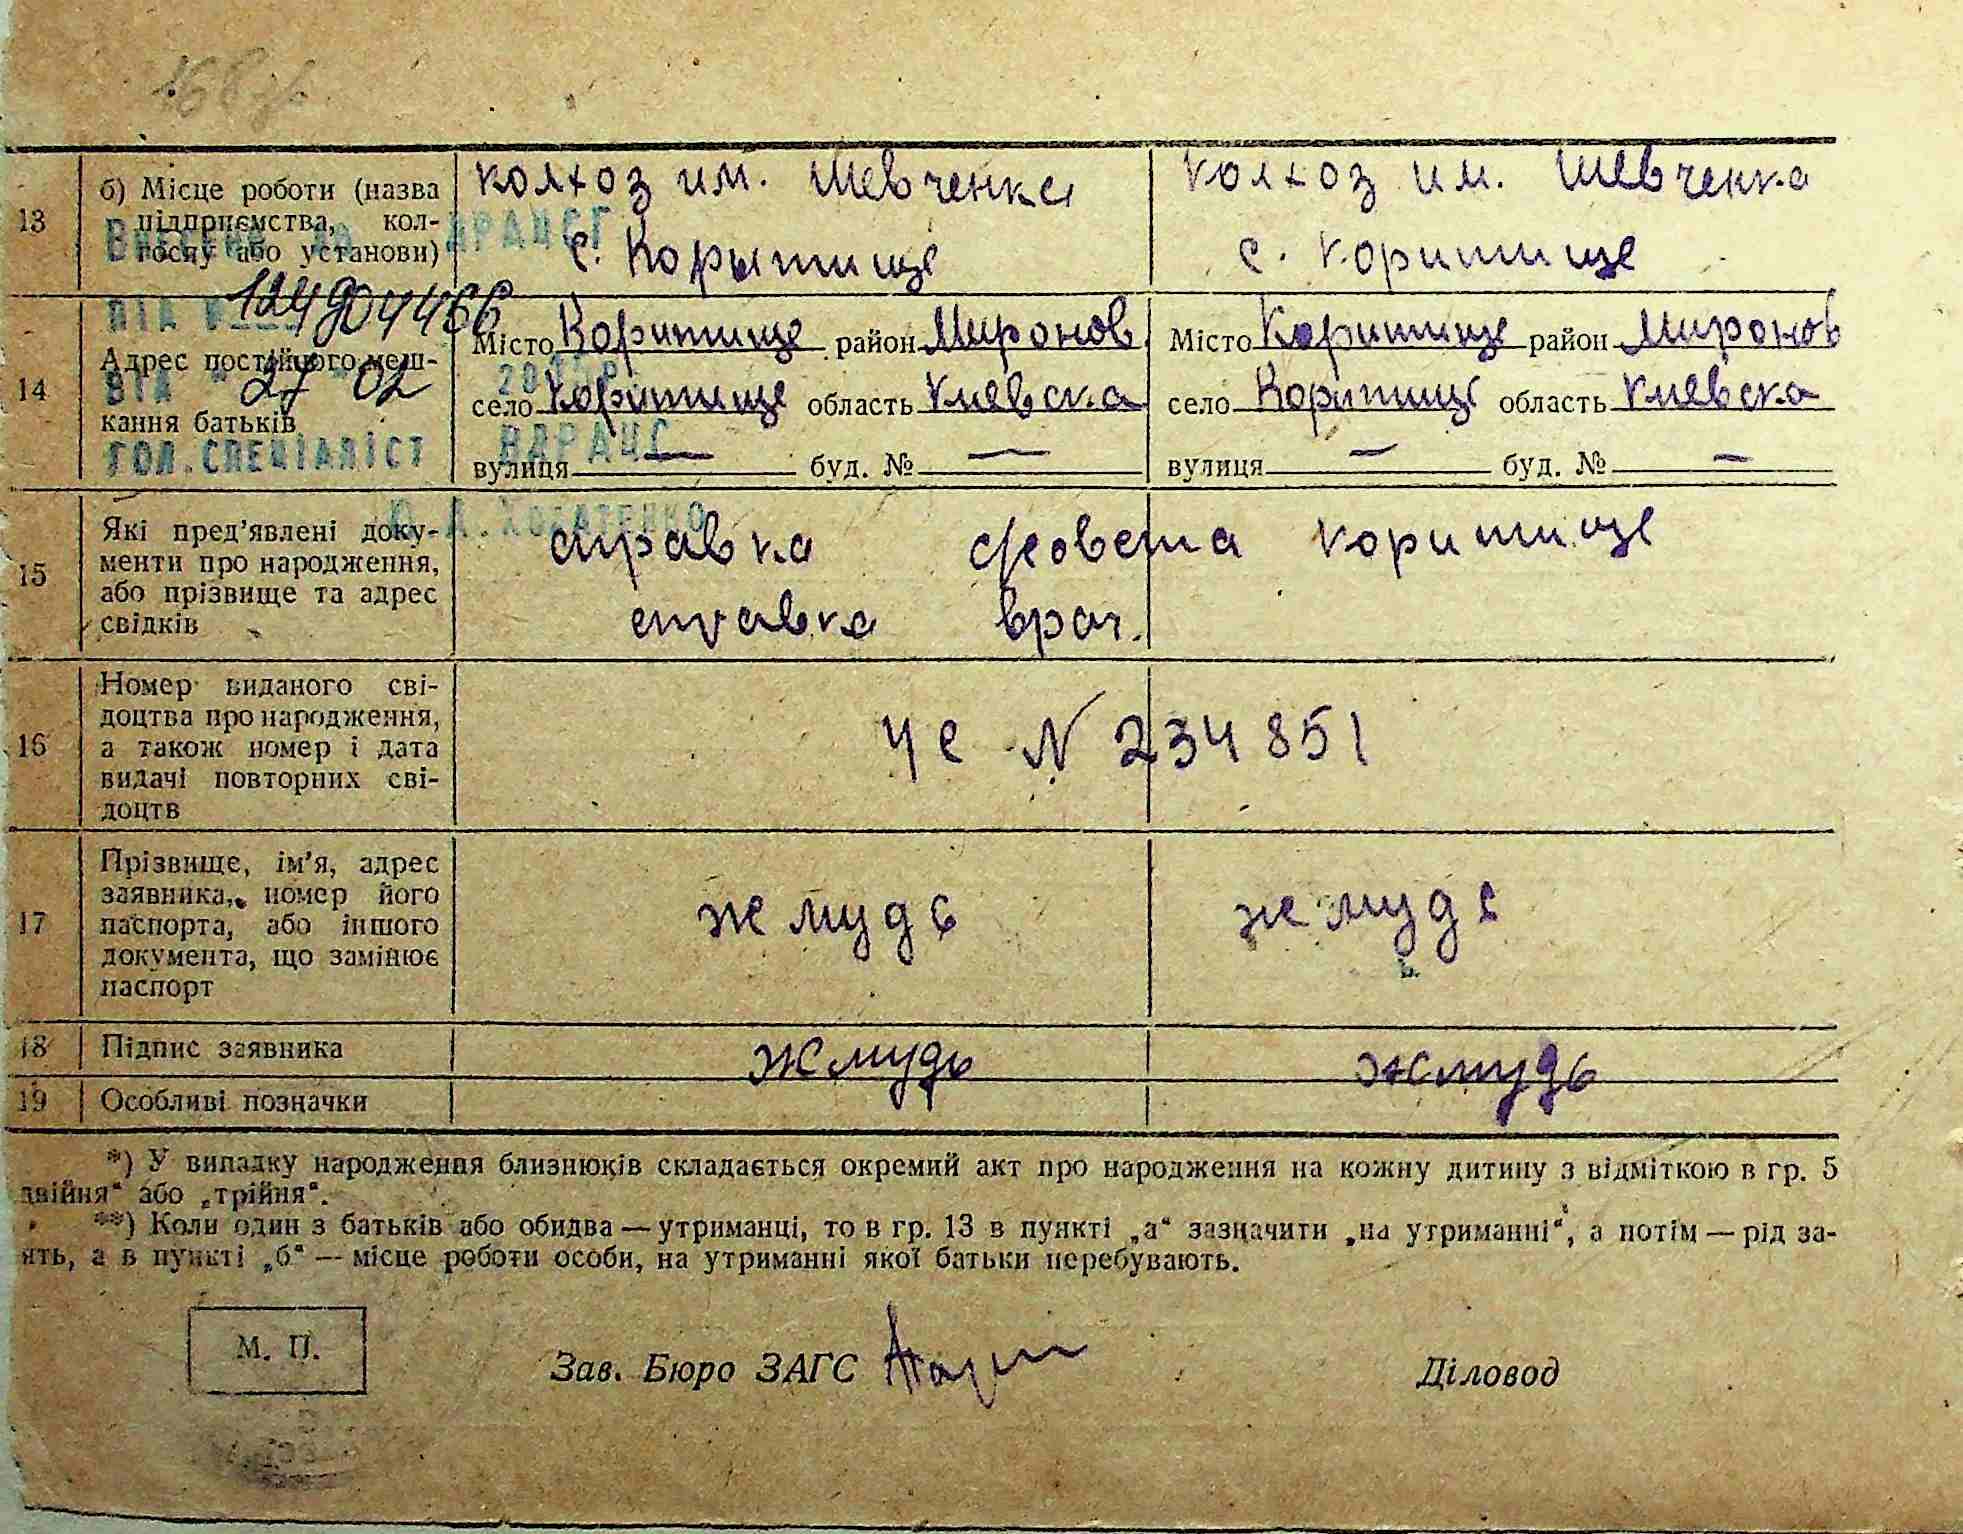 13
б) Місце роботи (назва
підприємства, кол-
госпу або установи)
колхоз им. Шевченка
с. Корытище
колхоз им. Шевченка
с. Коритище
14
Адрес постійного меш-
кання батьків
Місто Коритище район Миронов
село Коритище область Киевска
вулиця — буд. № —
Місто Коритище район Миронов
село Коритище область Киевска
вулиця — буд. № —
27 02
ГОЛ. СПЕЦІАЛІСТ ВДРАЦС
15
Які пред'явлені доку-
менти про народження,
або прізвище та адрес
свідків
справка с/совета коритище
справка врач.
16
Номер виданого сві-
доцтва про народження,
а також номер і дата
видачі повторних сві-
доцтв
ЧС N 234851
17
Прізвище, ім'я, адрес
заявника, номер його
паспорта, або іншого
документа, що замінює
паспорт
жмудь
жмудь
18
Підпис заявника
Жмудь
Жмудь
19
Особливі позначки
*) У випадку народження близнюків складається окремий акт про народження на кожну дитину з відміткою в гр. 5
двійня" або „трійня".
**) Коли один з батьків або обидва — утриманці, то в гр. 13 в пункті „а" зазначити „на утриманні", а потім — рід за-
нять, а в пункті „б" — місце роботи особи, на утриманні якої батьки перебувають.
М. П.
Зав. Бюро ЗАГС
Діловод